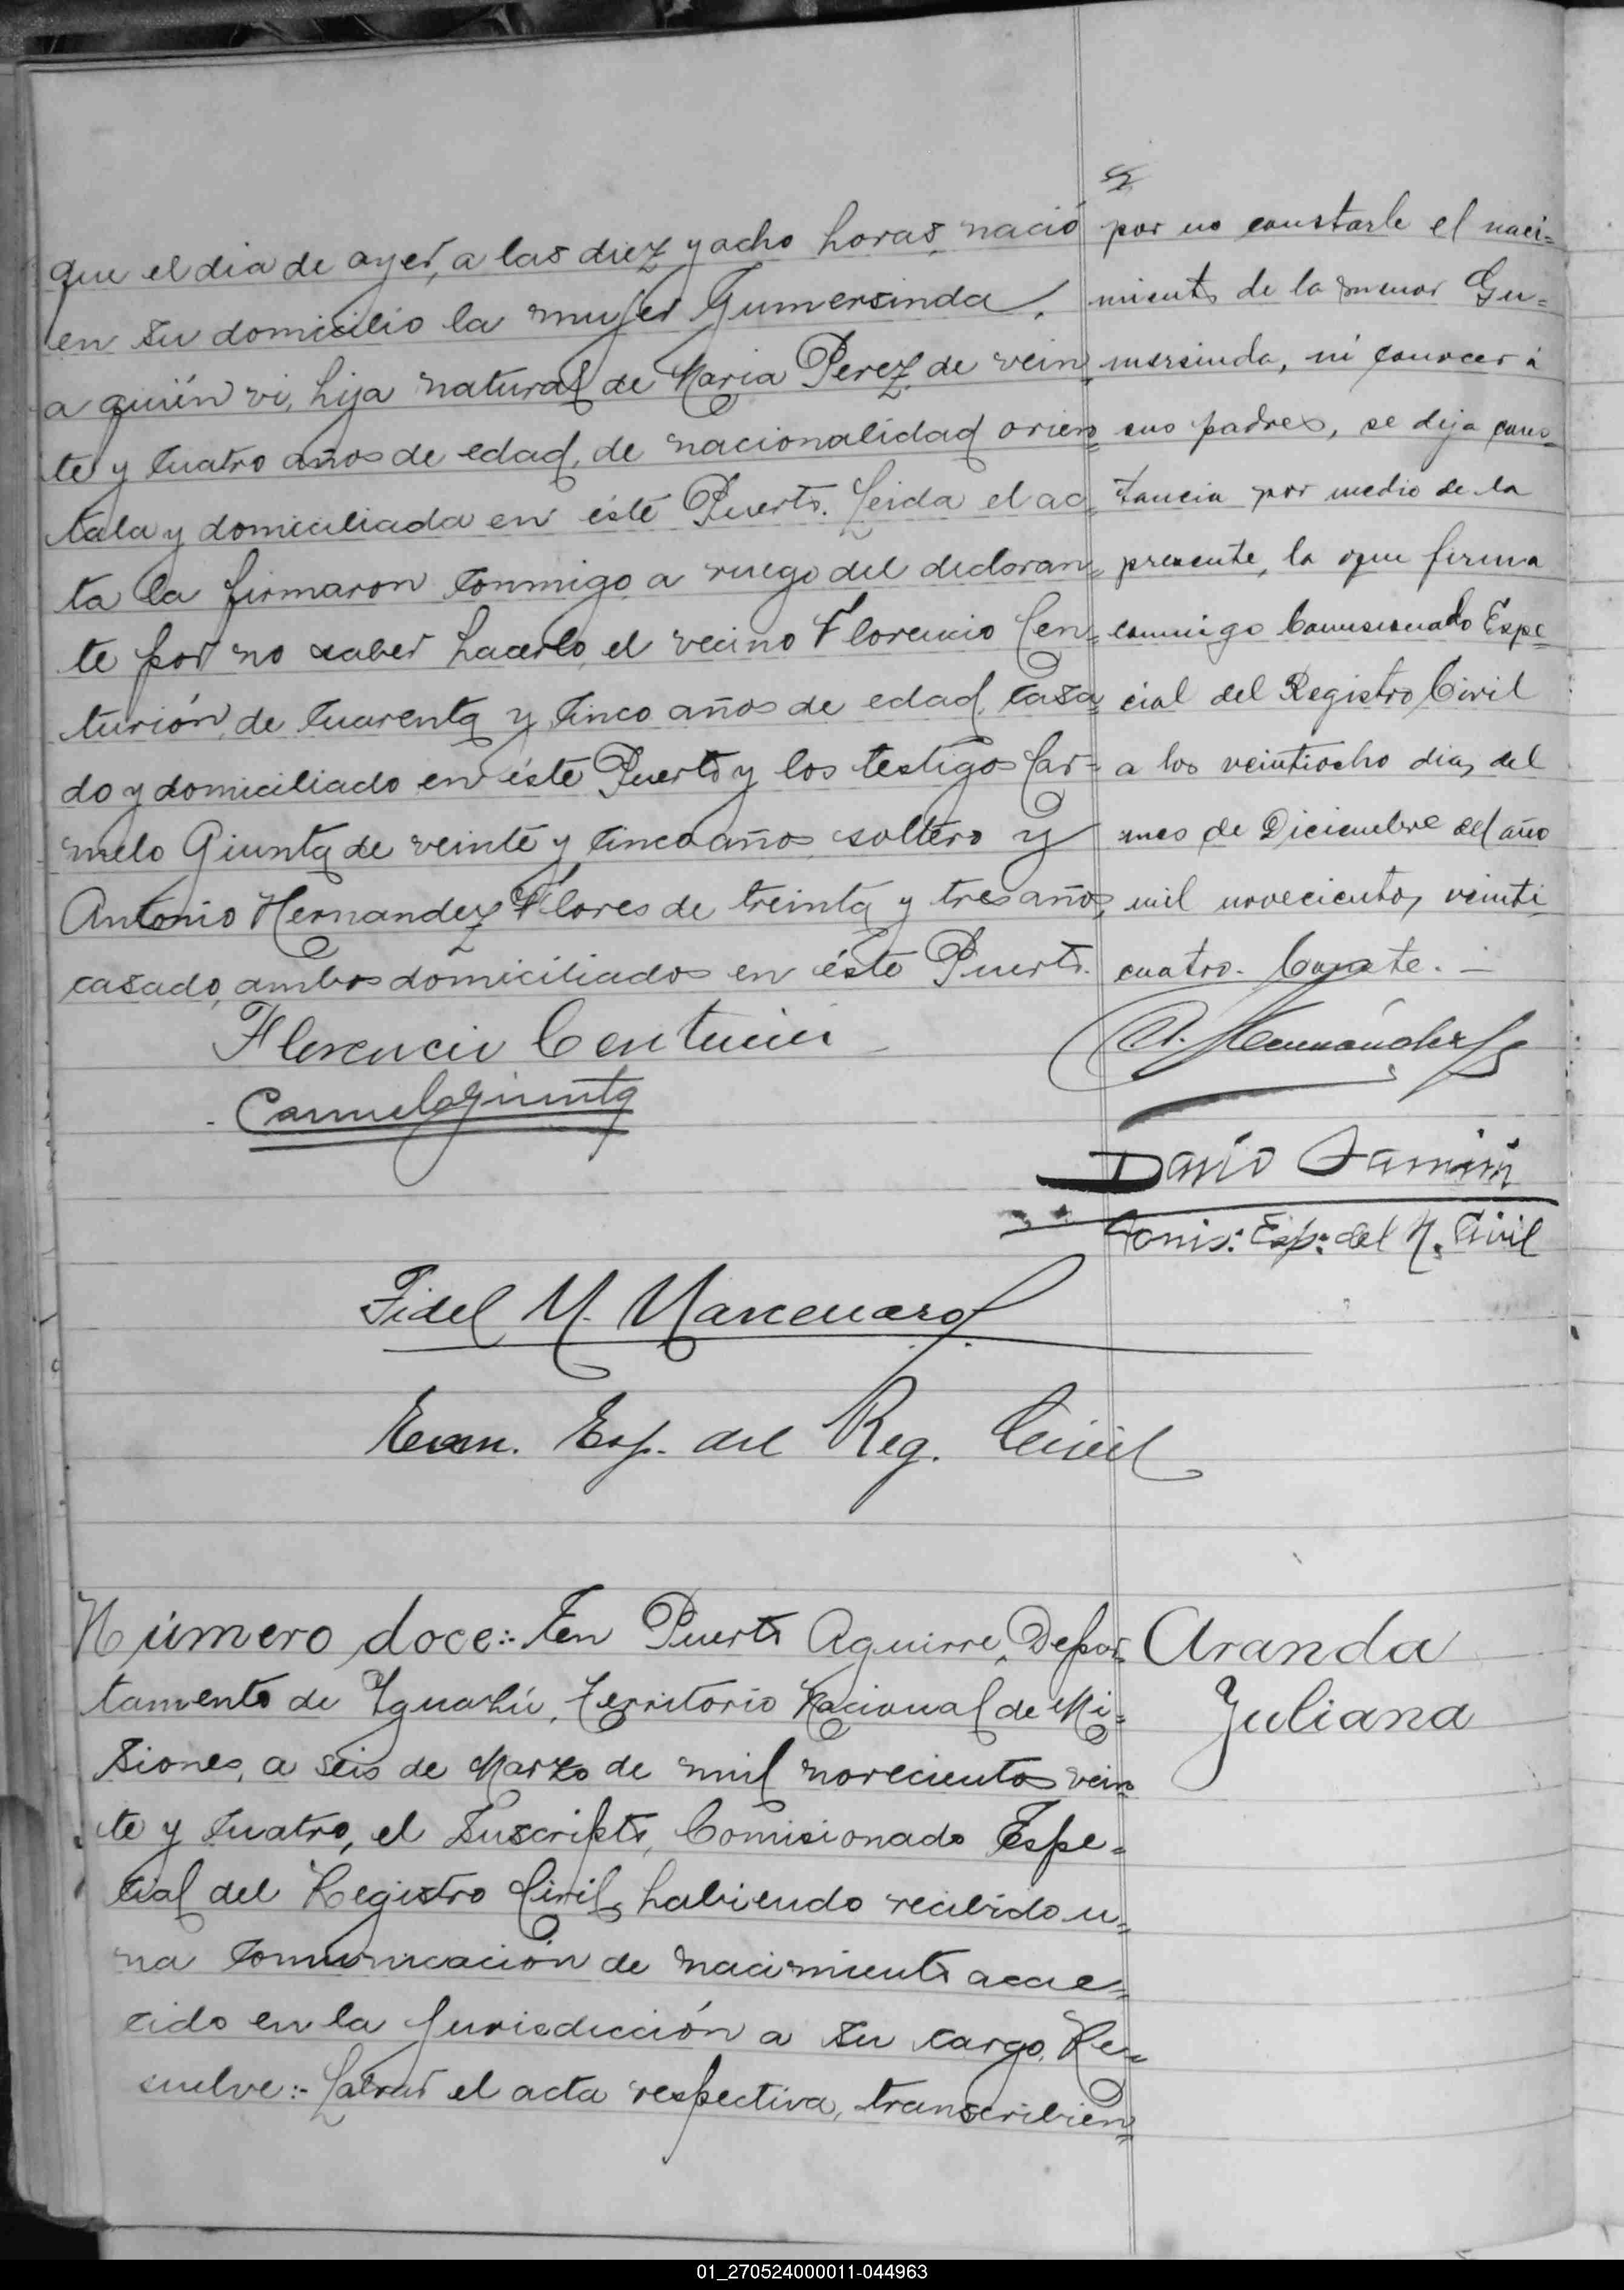 que el dia de ayer, a las diez y ocho horas, nació
en su domicilio la mujer Gumersinda,
a quién vi, hija natural de Maria Perez, de vein
te y cuatro años de edad, de nacionalidad orien=
tala y domiciliada en éste Puerto. Leida el ac=
ta la firmaron conmigo a ruego del declaran=
te por no saber hacerlo, el vecino Florencio Cen=
turión, de cuarenta y cinco años de edad, casa=
do y domiciliado en éste Puerto y los testigos Car=
melo Giunta de veinte y cinco años, soltero y
Antonio Hernandez Flores de treinta y tres años,
casado, ambos domiciliados en éste Puerto.
Florencio Centurion
Carmelo Giunta
Fidel M. Marcenaro
Esp. del Reg. Civil
por no constarle el naci=
miento de la menor Gu=
mersinda, ni conocer á
sus padres, se deja cons=
tancia por medio de la
presente, la que firma
conmigo Comisionado Espe
cial del Registro Civil
a los veintiocho dias del
mes de Diciembre del año
mil novecientos veinti
cuatro. Conste. –
A. Hernández
Comis: Esp: del R. Civil
Número doce:- En Puerto Aguirre, Depar=
tamento de Iguazú, Territorio Nacional de Mi=
siones, a seis de Marzo de mil novecientos vein
te y cuatro, el suscripto, Comisionado Espe=
cial del Registro Civil, habiendo recibido u=
na comunicación de nacimiento acae=
cido en la jurisdicción a su cargo, Re=
suelve:- Labrar el acta respectiva, transcribien=
Aranda
Juliana
01_270524000011-044963